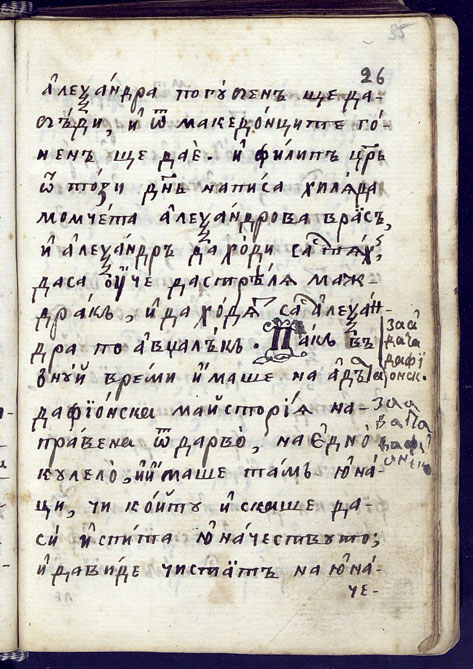 26
а҆леѯа́ндра погꙋ́бенъ ще да-
бъ́ди, и҆ ѿ македо́нците го́-
ненъ ще даѐ. и҆ фи́липъ цр҃ь
ѿ то́зи дн҃ь напи́са хилѧ́да
момче́та а҆леѯа́ндрова вра́съ,
и҆ а҆леѯа́ндръ да хо́ди са тѧ́хъ,
даса ᲂу҆́че дастре́лѧ маж-
дра́къ, и҆ да хо́дѧтъ са а҆леѯа́н-
дра по авџалъ́къ. Па́къ въ
ѻнꙋ́й вре́ми и҆́маше на а҆дъ̀
дафїо́нска майстори́ѧ на-
пра́вена ѿ дарво̀, на є҆дно̀
кулело̀, и҆ и҆́маше та́мъ ю҆на́-
ци, чи ко́йту и҆́скаше да
си́ и҆спи́та ю҆на́чествуто,
и҆ дави́де чистїа́тъ на ю҆на́-
че-